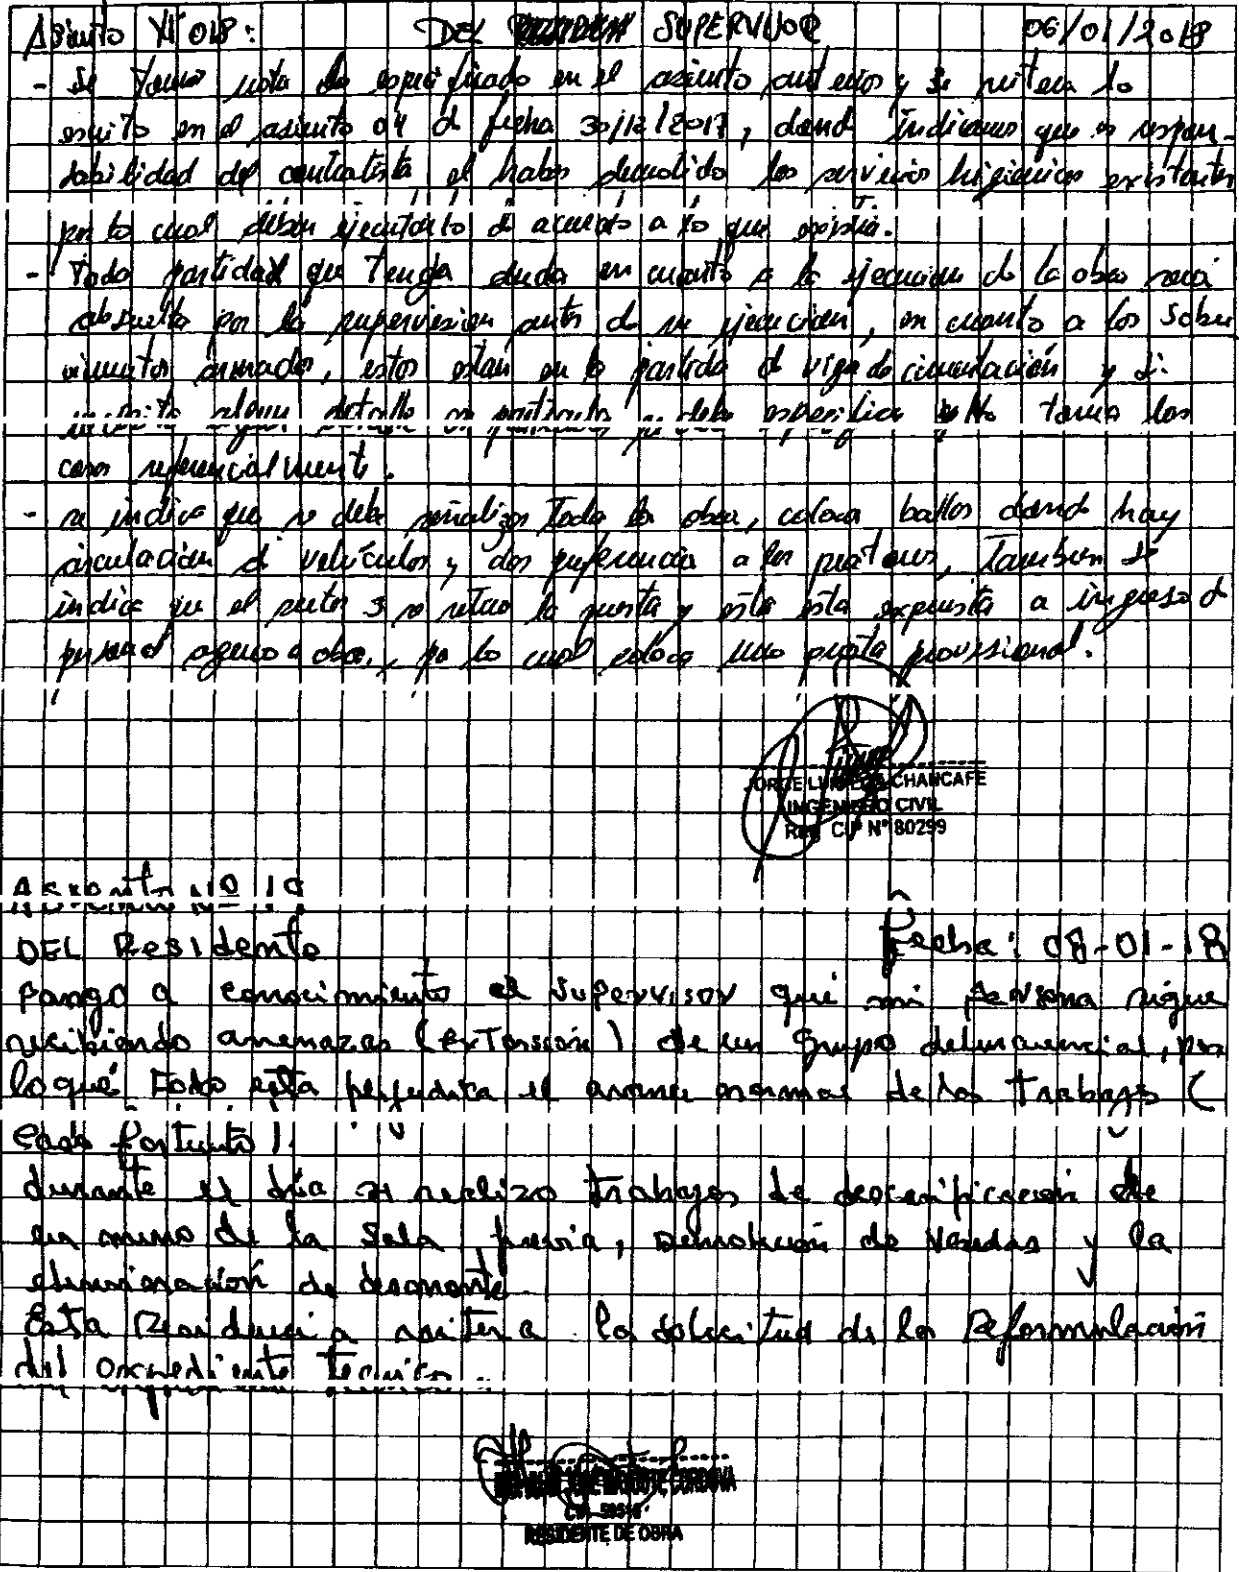 Asiento Nº 018: DEL SUPERVISOR 06/01/2018
- Se toma nota lo especificado en el asiento anterior y se reitera lo
escrito en el asiento 04 de fecha 30/12/2017, donde indicamos que es respon-
sabilidad del contratista el haber demolido los servicios higienicos existentes
por lo cual deben ejecutarlo de acuerdo a lo que existia.
- Toda partida que tenga duda en cuanto a la ejecucion de la obra será
absuelta por la supervision antes de su ejecucion, en cuanto a los sobre
cimientos armados, estos estan en la partida de viga de cimentación y si
necesito algun detalle en particular se debe especificar y no tomar los
casos referencialmente.
- se indica que se debe señalizar toda la obra, colocar dando hay
circulación de vehículos y dar preferencia a los , tambien se
indica que el sector 3 se retiro la puerta y esta esta expuesta a ingreso de
personal ageno a obra, por lo cual coloca una puerta provisional.
JORGE LUIS CHANCAFE
INGENIERO CIVIL
Reg. CIP Nº 80299
Asiento Nº 19
DEL Residente Fecha: 08-01-18
Pongo a conocimiento al supervisor que mi persona sigue
recibiendo amenazas (extorsión) de un grupo delincuencial, por
lo que todo esto perjudica el avance normal de los trabajos (
caso fortuito).
durante el día se realizo trabajos de de
un muro de la Sala previa, Demolición de veredas y la
eliminación de desmonte.
Esta Residencia reitera la solicitud de la Reformulación
del expediente técnico.
CORDOVA
RESIDENTE DE OBRA